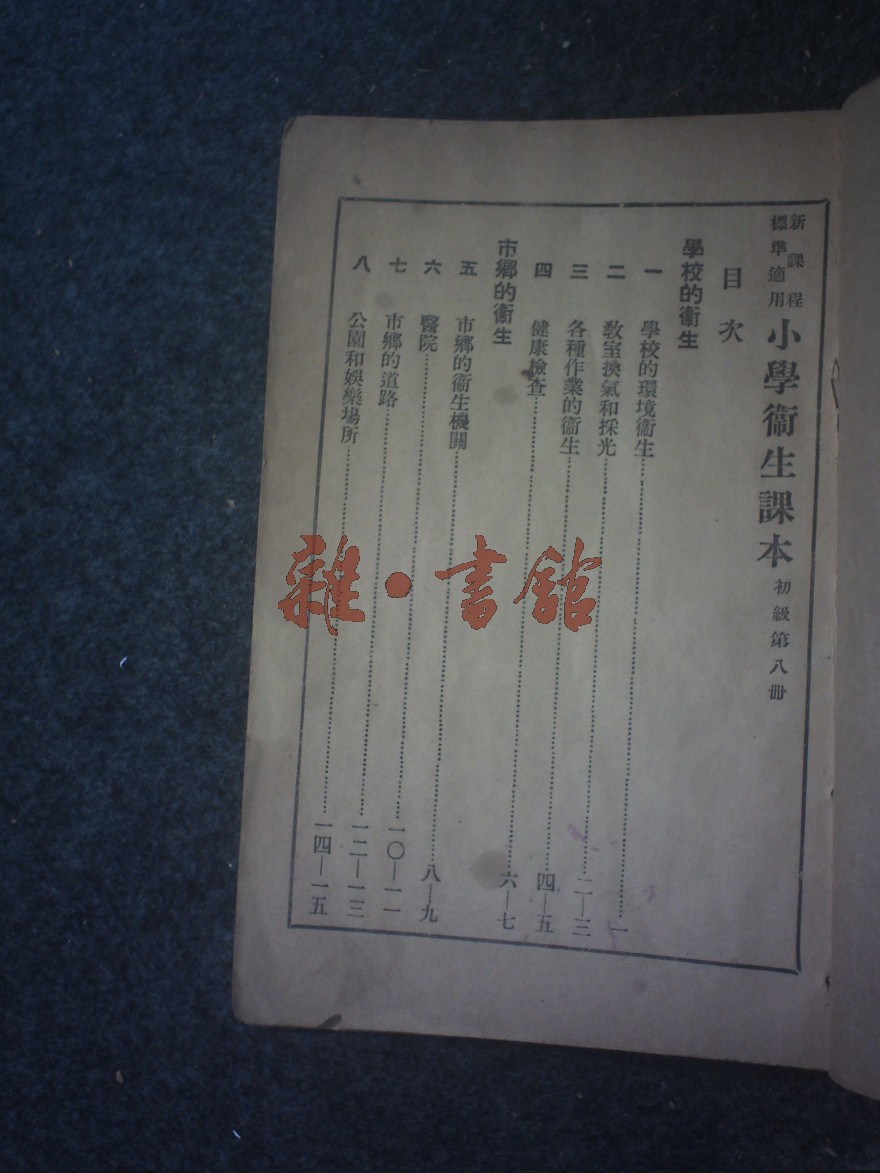 新課程
標準適用
小學衞生課本 初級第八冊
目次
學校的衞生
一 學校的環境衞生……一
二 敎室換氣和採光……二—三
三 各種作業的衞生……四—五
四 健康檢查……六—七
市鄉的衞生
五 市鄉的衞生機關……八—九
六 醫院……一〇—一一
七 市鄉的道路……一二—一三
八 公園和娛樂場所……一四—一五
雜·書館